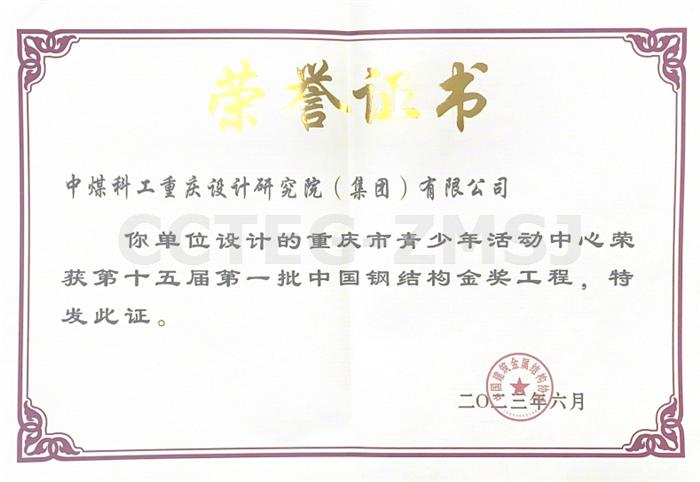 荣誉证书
中煤科工重庆设计研究院（集团）有限公司
CCTEG ZMSJ
你单位设计的重庆市青少年活动中心荣
获第十五届第一批中国钢结构金奖工程，特
发此证。
中国建筑金属结构协会
二〇二三年六月